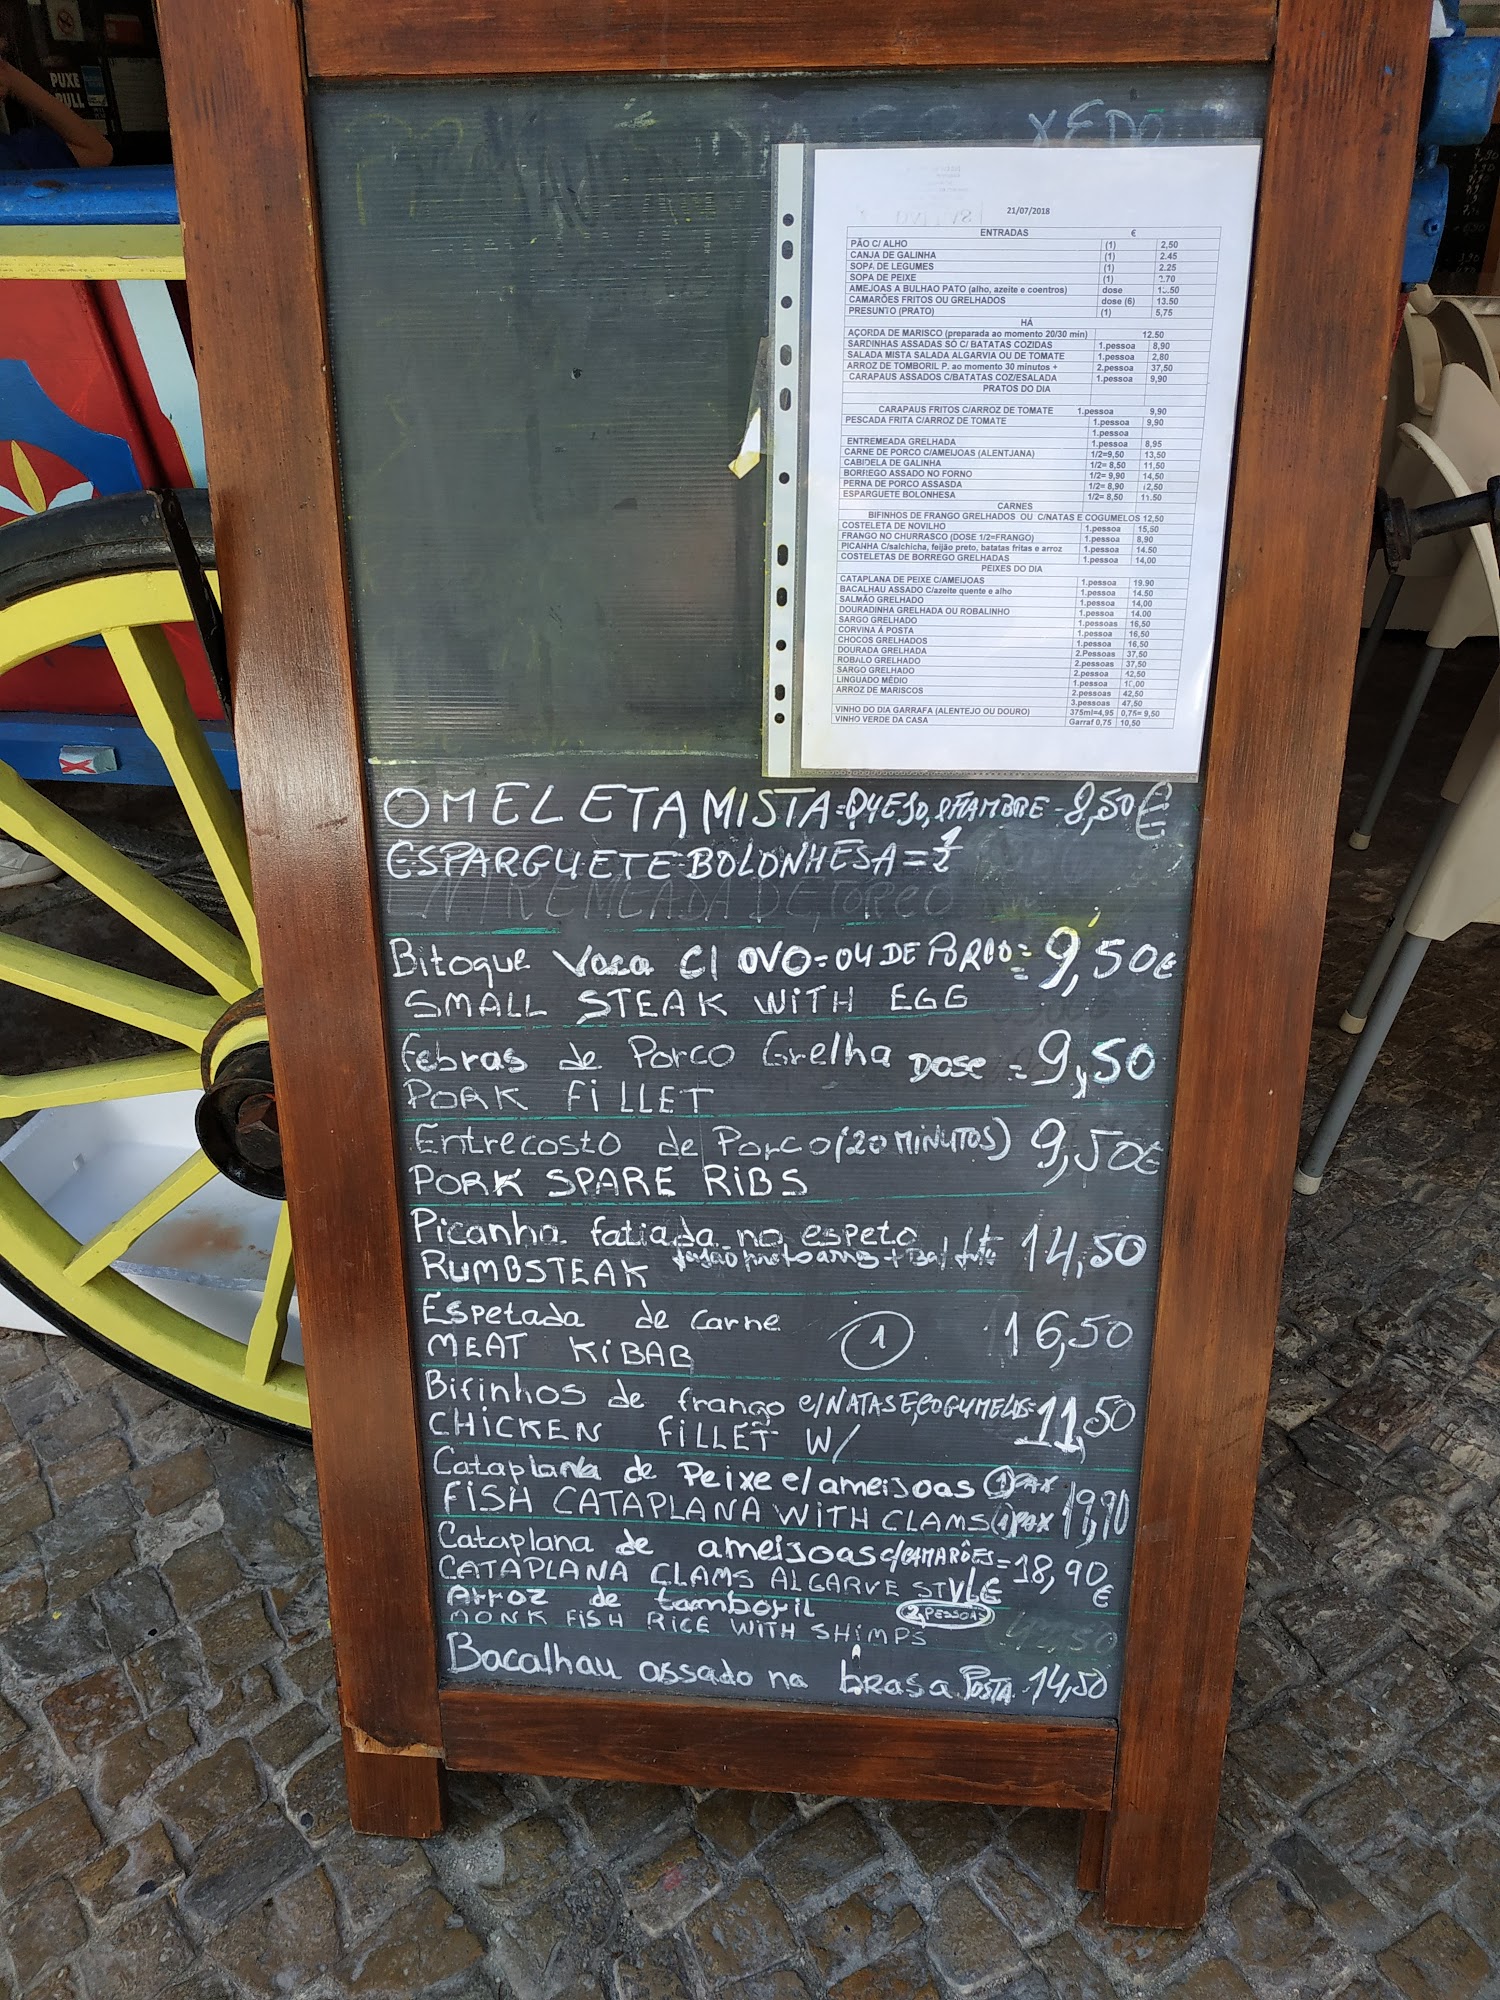 PUXE
PULL
21/07/2018
ENTRADAS €
PÃO C/ ALHO (1) 2,50
CANJA DE GALINHA (1) 2.45
SOPA DE LEGUMES (1) 2.25
SOPA DE PEIXE (1) 2.70
AMEJOAS A BULHAO PATO (alho, azeite e coentros) dose
CAMARÕES FRITOS OU GRELHADOS dose (6) 13.50
PRESUNTO (PRATO) (1) 5,75
HÁ
AÇORDA DE MARISCO (preparada ao momento 20/30 min) 12.50
SARDINHAS ASSADAS SÓ C/ BATATAS COZIDAS 1.pessoa 8,90
SALADA MISTA SALADA ALGARVIA OU DE TOMATE 1.pessoa 2,80
ARROZ DE TOMBORIL P. ao momento 30 minutos + 2.pessoa 37,50
CARAPAUS ASSADOS C/BATATAS COZ/ESALADA 1.pessoa 9,90
PRATOS DO DIA
CARAPAUS FRITOS C/ARROZ DE TOMATE 1.pessoa 9,90
PESCADA FRITA C/ARROZ DE TOMATE 1.pessoa 9,90
1.pessoa
ENTREMEADA GRELHADA 1.pessoa 8,95
CARNE DE PORCO C/AMEIJOAS (ALENTJANA) 1/2=9,50 13,50
CABIDELA DE GALINHA 1/2= 8,50 11,50
BORREGO ASSADO NO FORNO 1/2= 9,90 14,50
PERNA DE PORCO ASSASDA 1/2= 8,90 12,50
ESPARGUETE BOLONHESA 1/2= 8,50 11.50
CARNES
BIFINHOS DE FRANGO GRELHADOS OU C/NATAS E COGUMELOS 12,50
COSTELETA DE NOVILHO 1.pessoa 15,50
FRANGO NO CHURRASCO (DOSE 1/2=FRANGO) 1.pessoa 8,90
PICANHA C/salchicha, feijão preto, batatas fritas e arroz 1.pessoa 14.50
COSTELETAS DE BORREGO GRELHADAS 1.pessoa 14,00
PEIXES DO DIA
CATAPLANA DE PEIXE C/AMEIJOAS 1.pessoa 19.90
BACALHAU ASSADO C/azeite quente e alho 1.pessoa 14.50
SALMÃO GRELHADO 1.pessoa 14,00
DOURADINHA GRELHADA OU ROBALINHO 1.pessoa 14.00
SARGO GRELHADO 1.pessoas 16,50
CORVINA À POSTA 1.pessoa 16,50
CHOCOS GRELHADOS 1.pessoa 16,50
DOURADA GRELHADA 2.Pessoas 37,50
ROBALO GRELHADO 2.pessoas 37,50
SARGO GRELHADO 2.pessoas
LINGUADO MÉDIO 1.pessoa
ARROZ DE MARISCOS 2.pessoas 42,50
3.pessoas 47,50
VINHO DO DIA GARRAFA (ALENTEJO OU DOURO) 375ml=4,95 0,75= 9,50
VINHO VERDE DA CASA Garraf 0,75 10,50
OMELETA MISTA=QUEJO, E FIAMBRE - 8,50€
ESPARGUETE BOLONHESA = 1/2
ENTREMEADA DE PORCO
Bitoque Vaca C/ OVO = OU DE PORCO = 9,50€
SMALL STEAK WITH EGG
Febras de Porco Grelha DOSE = 9,50
PORK FILLET
Entrecosto de Porco (20 MINUTOS) 9,50€
PORK SPARE RIBS
Picanha fatiada no espeto 14,50
RUMBSTEAK feijão preto arroz + Bat frita
Espetada de carne 1 16,50
MEAT KIBAB
Bifinhos de frango c/NATAS E COGUMELOS = 11,50
CHICKEN FILLET W/
Cataplana de Peixe c/ameijoas (1) PAX 19,90
FISH CATAPLANA WITH CLAMS (1) PAX
Cataplana de ameijoas c/CAMARÕES = 18,90€
CATAPLANA CLAMS ALGARVE STYLE
Arroz de tamboril 2 PESSOAS
MONK FISH RICE WITH SHIMPS
Bacalhau assado na brasa POSTA 14,50